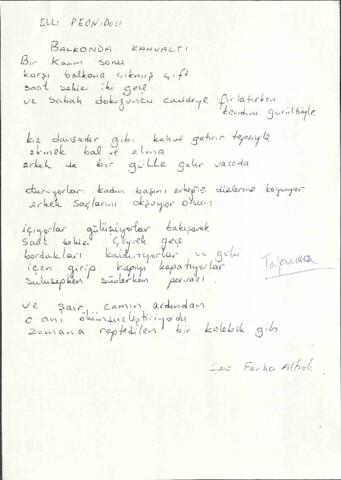 BALKONDA KAHVALTI
Bir Kasım sonu
karşı balkona çıkmış çift
saat sekizi iki geçe
ve sabah dokuzuncu caddeye fırlatırken
kendini gürültüyle
kız danseder gibi kahve getirir tepsiyle
ekmek bal ve elma
erkek de bir gülle gelir vazoda
duruyorlar kadın başını erkeğin dizlerine koyuyor
erkek saçlarını okşuyor onun
içiyorlar gülüşüyorlar bakışarak
saat sekizi çeyrek geçe
bardakları kaldırıyorlar ve gülü
içeri girip kapıyı kapatıyorlar
süslerken pervazı
ve şair, camın ardından
o anı ölümsüzleştiriyordu
zamana raptedilen bir kelebek gibi